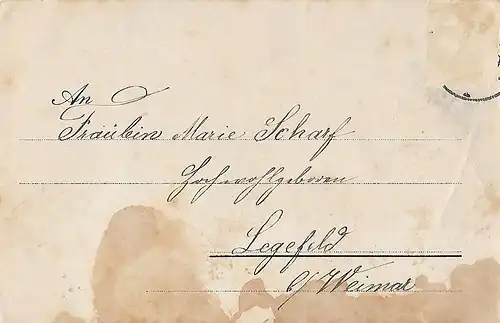 An
Fräulein Marie Scharf
Hochwohlgeboren
Legefeld
b/ Weimar